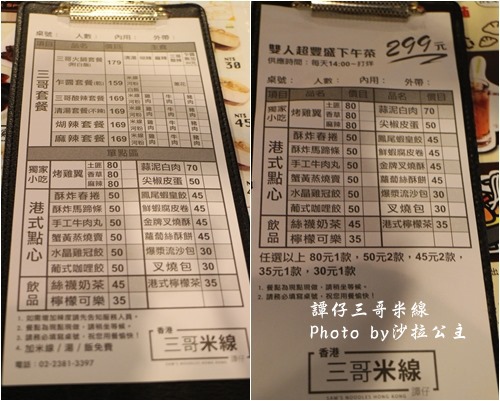 桌號： 人數： 內用： 外帶：
項目 品名 價目 主食
三哥套餐
三哥火鍋套餐 179
乍醬套餐 159
三哥酸辣套餐 169
清湯套餐 169
煳辣套餐 169
麻辣套餐 169
單點區
項目 品名 價目 品名 價目
獨家小吃
烤雞翼 土匪 80 香草 80 麻辣 80
蒜泥白肉 70
尖椒皮蛋 50
港式點心
酥炸春捲 50 鳳尾蝦皇餃 45
酥炸馬蹄條 50 鮮蝦腐皮卷 45
手工牛肉丸 50 金牌叉燒酥 45
蟹黃蒸燒賣 50 蘿蔔絲酥餅 45
水晶雞冠餃 50 爆漿流沙包 30
葡式咖哩餃 50 叉燒包 30
飲品
絲襪奶茶 45 港式檸檬茶 35
檸檬可樂 35
1. 如需增加辣度請告知服務人員。
2. 餐點為現點現做，請稍坐等候。
3. 請務必填寫桌號，祝您用餐愉快！
4. 加米線/湯/飯免費
電話：02-2381-3397
香港
三哥米線
譚仔
雙人超豐盛下午茶 299元
供應時間：每天14:00~打烊
桌號： 人數： 內用： 外帶：
項目 品名 價目 品名 價目
獨家小吃
烤雞翼 土匪 80 香草 80 麻辣 80
蒜泥白肉 70
尖椒皮蛋 50
港式點心
酥炸春捲 50 鳳尾蝦皇餃 45
酥炸馬蹄條 50 鮮蝦腐皮卷 45
手工牛肉丸 50 金牌叉燒酥 45
蟹黃蒸燒賣 50 蘿蔔絲酥餅 45
水晶雞冠餃 50 爆漿流沙包 30
葡式咖哩餃 50 叉燒包 30
飲品
絲襪奶茶 45 港式檸檬茶 35
檸檬可樂 35
任選以上 80元1款，50元2款，45元2款，
35元1款，30元1款。
1. 餐點為現點現做，請稍坐等候。
2. 請務必填寫桌號，祝您用餐愉快！
譚仔三哥米線
Photo by沙拉公主
香港
三哥米線
譚仔